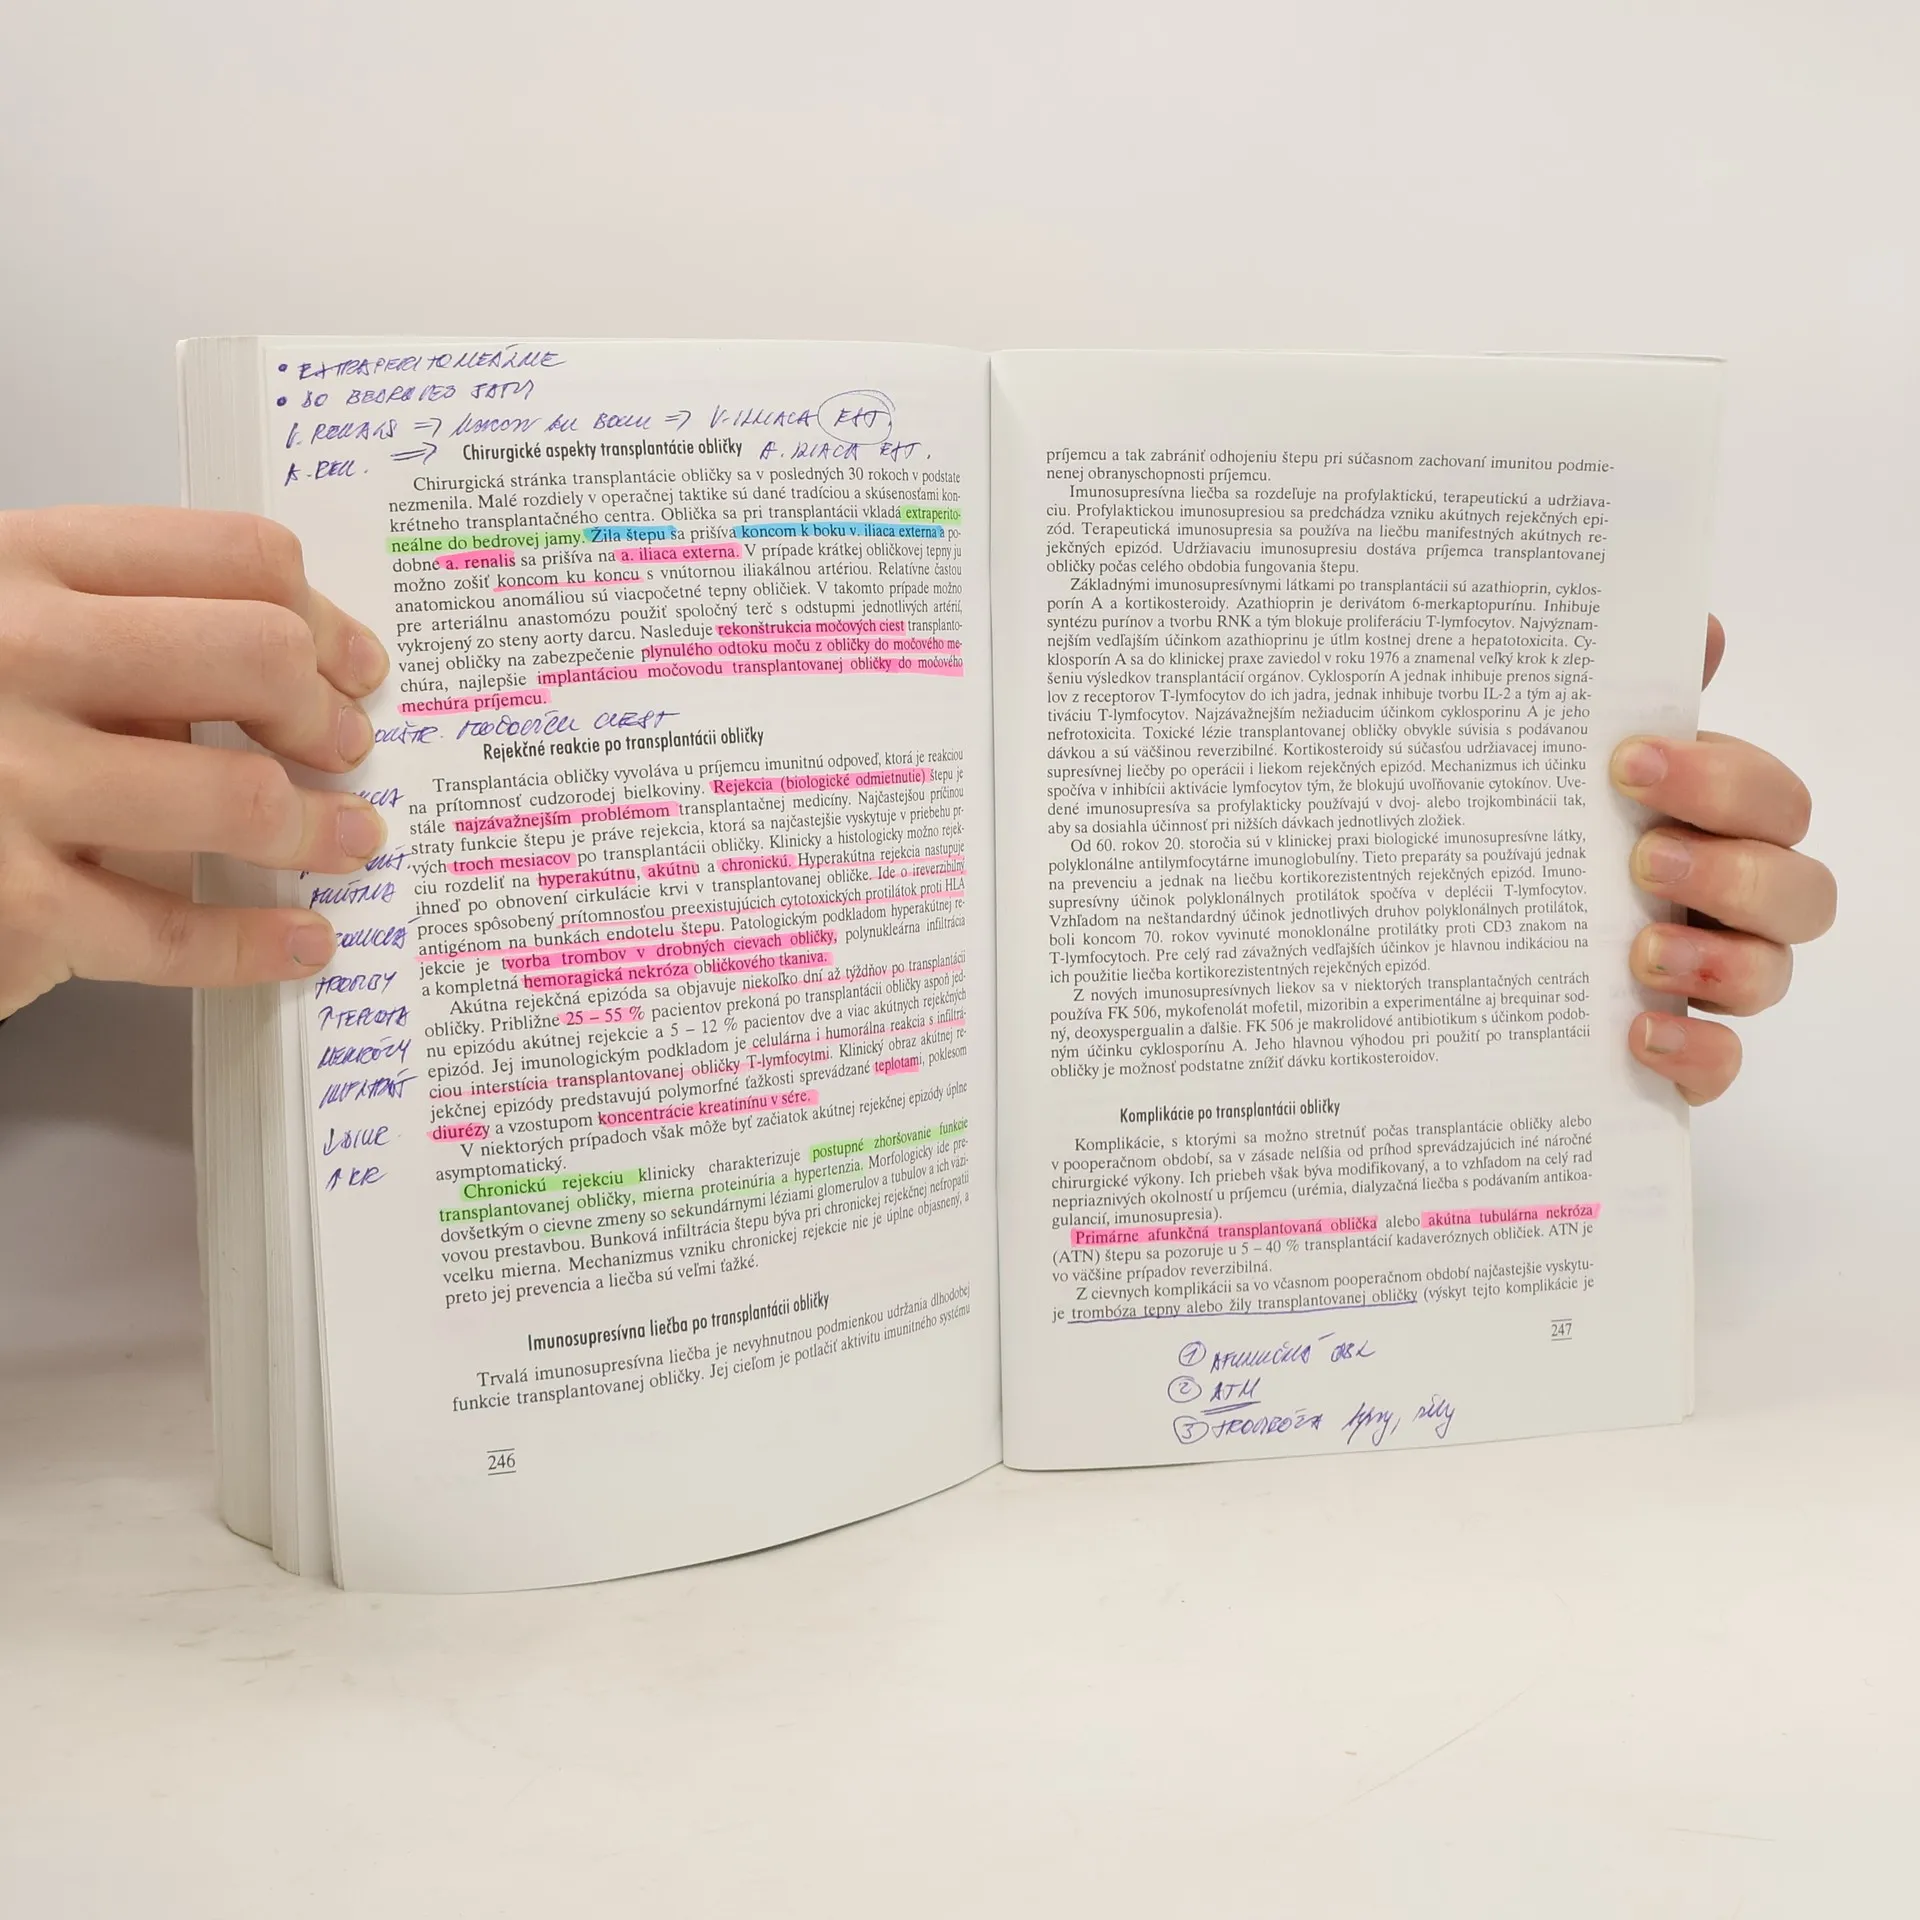 • EXTRAPERITONEÁLNE
• DO BEDROVEJ JAMY
V. RENALIS => KONCOM KU BOKU => V. ILLIACA EXT.
A. REN. => A. ILIACA EXT.
Chirurgické aspekty transplantácie obličky
Chirurgická stránka transplantácie obličky sa v posledných 30 rokoch v podstate
nezmenila. Malé rozdiely v operačnej taktike sú dané tradíciou a skúsenosťami kon-
krétneho transplantačného centra. Oblička sa pri transplantácii vkladá extraperito-
neálne do bedrovej jamy. Žila štepu sa prišíva koncom k boku v. iliaca externa a po-
dobne a. renalis sa prišíva na a. iliaca externa. V prípade krátkej obličkovej tepny ju
možno zošiť koncom ku koncu s vnútornou iliakálnou artériou. Relatívne častou
anatomickou anomáliou sú viacpočetné tepny obličiek. V takomto prípade možno
pre arteriálnu anastomózu použiť spoločný terč s odstupmi jednotlivých artérií,
vykrojený zo steny aorty darcu. Nasleduje rekonštrukcia močových ciest transplanto-
vanej obličky na zabezpečenie plynulého odtoku moču z obličky do močového me-
chúra, najlepšie implantáciou močovodu transplantovanej obličky do močového
mechúra príjemcu.
MOČOVÝCH CIEST
Rejekčné reakcie po transplantácii obličky
Transplantácia obličky vyvoláva u príjemcu imunitnú odpoveď, ktorá je reakciou
na prítomnosť cudzorodej bielkoviny. Rejekcia (biologické odmietnutie) štepu je
stále najzávažnejším problémom transplantačnej medicíny. Najčastejšou príčinou
straty funkcie štepu je práve rejekcia, ktorá sa najčastejšie vyskytuje v priebehu pr-
vých troch mesiacov po transplantácii obličky. Klinicky a histologicky možno rejek-
ciu rozdeliť na hyperakútnu, akútnu a chronickú. Hyperakútna rejekcia nastupuje
AKÚTNA
ihneď po obnovení cirkulácie krvi v transplantovanej obličke. Ide o ireverzibilný
proces spôsobený prítomnosťou preexistujúcich cytotoxických protilátok proti HLA
antigénom na bunkách endotelu štepu. Patologickým podkladom hyperakútnej re-
jekcie je tvorba trombov v drobných cievach obličky, polynukleárna infiltrácia
a kompletná hemoragická nekróza obličkového tkaniva.
TROMBY
Akútna rejekčná epizóda sa objavuje niekoľko dní až týždňov po transplantácii
obličky. Približne 25 – 55 % pacientov prekoná po transplantácii obličky aspoň jed-
↑TEPLOTA
nu epizódu akútnej rejekcie a 5 – 12 % pacientov dve a viac akútnych rejekčných
epizód. Jej imunologickým podkladom je celulárna i humorálna reakcia s infiltrá-
NEKRÓZY
ciou interstícia transplantovanej obličky T-lymfocytmi. Klinický obraz akútnej re-
jekčnej epizódy predstavujú polymorfné ťažkosti sprevádzané teplotami, poklesom
diurézy a vzostupom koncentrácie kreatinínu v sére.
↓DIUR.
V niektorých prípadoch však môže byť začiatok akútnej rejekčnej epizódy úplne
asymptomatický.
↑ KR
Chronickú rejekciu klinicky charakterizuje postupné zhoršovanie funkcie
transplantovanej obličky, mierna proteinúria a hypertenzia. Morfologicky ide pre-
dovšetkým o cievne zmeny so sekundárnymi léziami glomerulov a tubulov a ich väzi-
vovou prestavbou. Bunková infiltrácia štepu býva pri chronickej rejekčnej nefropatii
vcelku mierna. Mechanizmus vzniku chronickej rejekcie nie je úplne objasnený, a
preto jej prevencia a liečba sú veľmi ťažké.
Imunosupresívna liečba po transplantácii obličky
Trvalá imunosupresívna liečba je nevyhnutnou podmienkou udržania dlhodobej
funkcie transplantovanej obličky. Jej cieľom je potlačiť aktivitu imunitného systému
246
príjemcu a tak zabrániť odhojeniu štepu pri súčasnom zachovaní imunitou podmie-
nenej obranyschopnosti príjemcu.
Imunosupresívna liečba sa rozdeľuje na profylaktickú, terapeutickú a udržiava-
ciu. Profylaktickou imunosupresiou sa predchádza vzniku akútnych rejekčných epi-
zód. Terapeutická imunosupresia sa používa na liečbu manifestných akútnych re-
jekčných epizód. Udržiavaciu imunosupresiu dostáva príjemca transplantovanej
obličky počas celého obdobia fungovania štepu.
Základnými imunosupresívnymi látkami po transplantácii sú azathioprin, cyklos-
porín A a kortikosteroidy. Azathioprin je derivátom 6-merkaptopurínu. Inhibuje
syntézu purínov a tvorbu RNK a tým blokuje proliferáciu T-lymfocytov. Najvýznam-
nejším vedľajším účinkom azathioprinu je útlm kostnej drene a hepatotoxicita. Cy-
klosporín A sa do klinickej praxe zaviedol v roku 1976 a znamenal veľký krok k zlep-
šeniu výsledkov transplantácií orgánov. Cyklosporín A jednak inhibuje prenos signá-
lov z receptorov T-lymfocytov do ich jadra, jednak inhibuje tvorbu IL-2 a tým aj ak-
tiváciu T-lymfocytov. Najzávažnejším nežiaducim účinkom cyklosporinu A je jeho
nefrotoxicita. Toxické lézie transplantovanej obličky obvykle súvisia s podávanou
dávkou a sú väčšinou reverzibilné. Kortikosteroidy sú súčasťou udržiavacej imuno-
supresívnej liečby po operácii i liekom rejekčných epizód. Mechanizmus ich účinku
spočíva v inhibícii aktivácie lymfocytov tým, že blokujú uvoľňovanie cytokínov. Uve-
dené imunosupresíva sa profylakticky používajú v dvoj- alebo trojkombinácii tak,
aby sa dosiahla účinnosť pri nižších dávkach jednotlivých zložiek.
Od 60. rokov 20. storočia sú v klinickej praxi biologické imunosupresívne látky,
polyklonálne antilymfocytárne imunoglobulíny. Tieto preparáty sa používajú jednak
na prevenciu a jednak na liečbu kortikorezistentných rejekčných epizód. Imuno-
supresívny účinok polyklonálnych protilátok spočíva v deplécii T-lymfocytov.
Vzhľadom na neštandardný účinok jednotlivých druhov polyklonálnych protilátok,
boli koncom 70. rokov vyvinuté monoklonálne protilátky proti CD3 znakom na
T-lymfocytoch. Pre celý rad závažných vedľajších účinkov je hlavnou indikáciou na
ich použitie liečba kortikorezistentných rejekčných epizód.
Z nových imunosupresívnych liekov sa v niektorých transplantačných centrách
používa FK 506, mykofenolát mofetil, mizoribin a experimentálne aj brequinar sod-
ný, deoxyspergualin a ďalšie. FK 506 je makrolidové antibiotikum s účinkom podob-
ným účinku cyklosporínu A. Jeho hlavnou výhodou pri použití po transplantácii
obličky je možnosť podstatne znížiť dávku kortikosteroidov.
Komplikácie po transplantácii obličky
Komplikácie, s ktorými sa možno stretnúť počas transplantácie obličky alebo
v pooperačnom období, sa v zásade nelíšia od príhod sprevádzajúcich iné náročné
chirurgické výkony. Ich priebeh však býva modifikovaný, a to vzhľadom na celý rad
nepriaznivých okolností u príjemcu (urémia, dialyzačná liečba s podávaním antikoa-
gulancií, imunosupresia).
Primárne afunkčná transplantovaná oblička alebo akútna tubulárna nekróza
(ATN) štepu sa pozoruje u 5 – 40 % transplantácií kadaveróznych obličiek. ATN je
vo väčšine prípadov reverzibilná.
Z cievnych komplikácií sa vo včasnom pooperačnom období najčastejšie vyskytu-
je trombóza tepny alebo žily transplantovanej obličky (výskyt tejto komplikácie je
247
① AFUNKČNÁ OBL
② ATN
③ TROMBÓZA tepny, žily